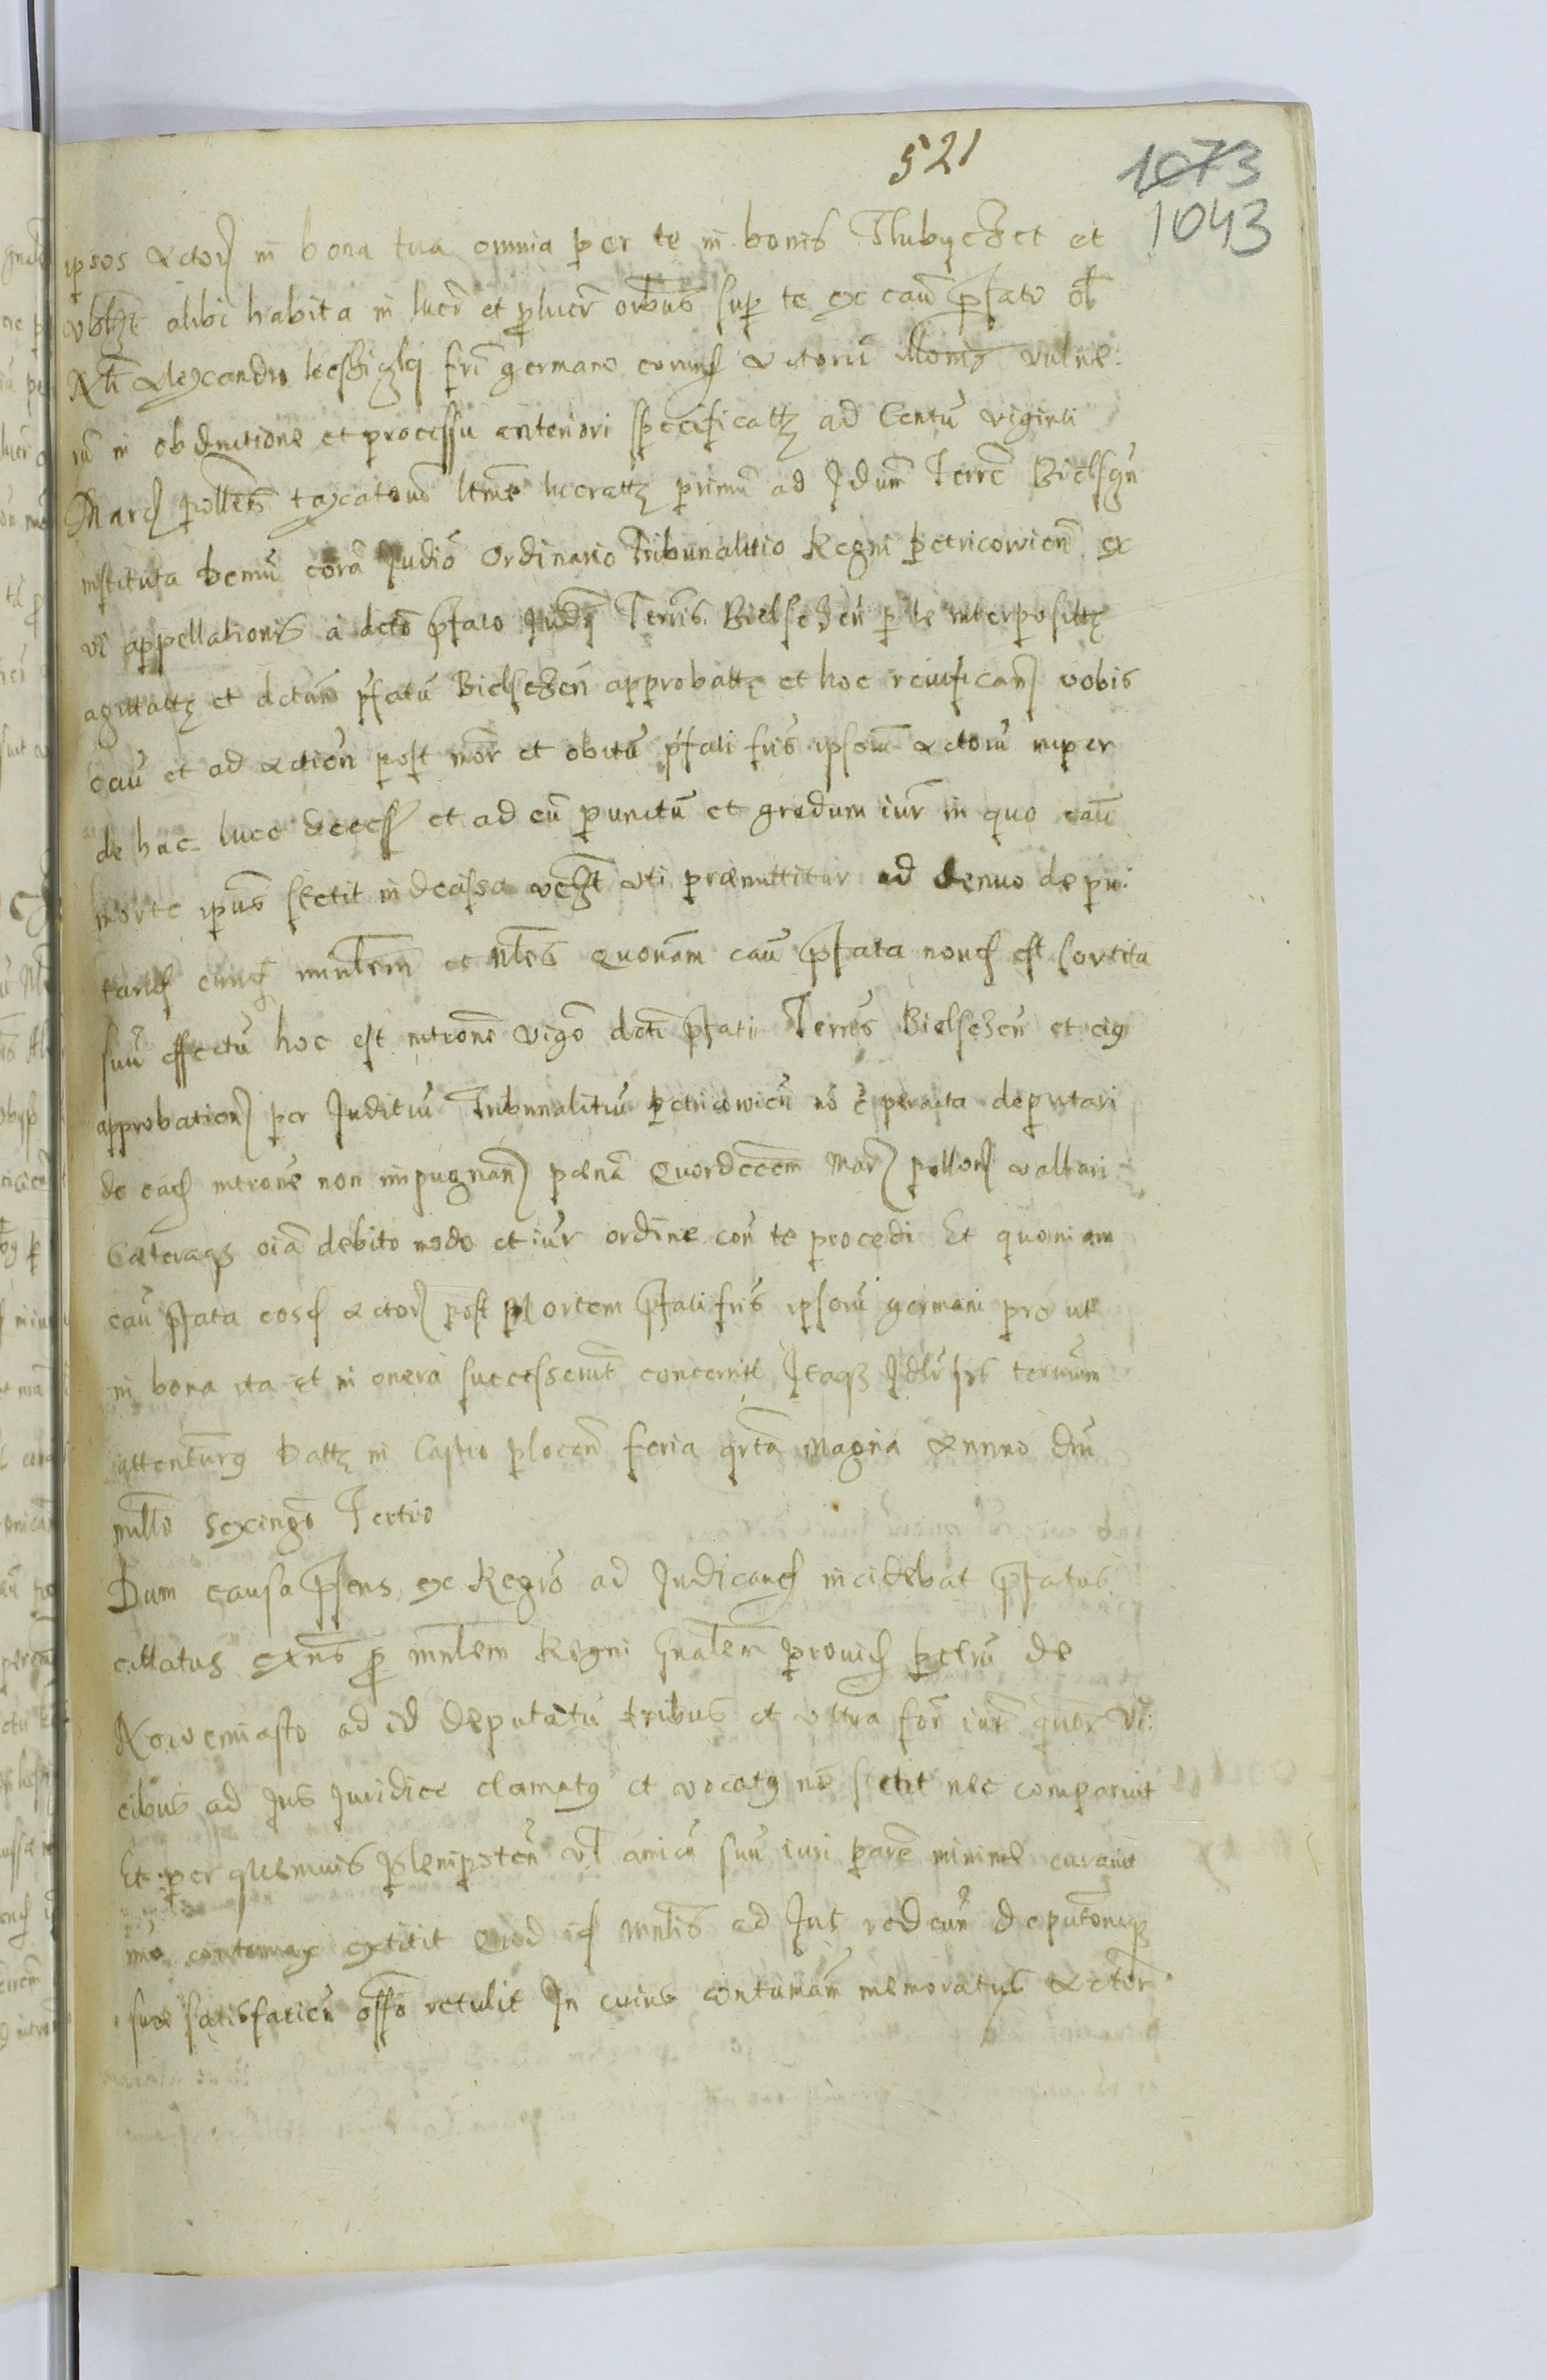 521
1073
1043
ipsos Actor in bona tua omnia per te in bonis Hubyczet et
alibi habita in lucr et plucr orbus sup te ex cau pfato ob
Alexandro frī germano eorund Actorū illoning vulne:
rū in obductione et processu anteriori specificattꝫ ad Centū viginti
Març pollēs taxatouo ltme lucrattꝫ primū ad Jdum Terrē Bielsgn
instituta demū corā Judiō Ordinario Tribunalitio Regni petricovien ex
vi appellationis a dcto pfato Judi Terris Bielseꝫen p te interposittꝫ
agittattꝫ et dctum pfatū Bielseꝫen approbattꝫ et hoc reiuifican vobis
cau et ad Actien post mor et obitū pfati fris ipsorū Actorū nuper
de hac luce decess et ad eū punctū et gradum iur in quo cau
morte ipsius stetit indecissa uti præmittitur ad denuo depu:
tand mnlem et nbles Quonām cau pfata nond est sortita
suū effectū hoc est intronē vigo dcti pfati Terrīs Bielseꝫen et eig
approbation per Juditiū Tribunalitiū petricowien nō ē peracta deputari
de ead intrōne non impugnan pænā Quordecēm Mar pollon vallari
Cæteraqꝫ oiā debito modo et iur ordine con te procedi Et quoniam
cau pfata eosd Actor post Mortem pfati fris ipsorū germani pro ut
in bona ita et in onera successerūt concernit Itaqꝫ terminum
attenturg Dattꝫ in Castro plocen feria qrtā Magna Annno dni
millo sexingo Tertio
Dum causa pfens ex Regro ad Judicand incidebat pfatus
cittatus p mnlem Regni Gnalem provid petrū de
Nowemiasto ad id deputatū tribus et ultra for iur quor Vi:
cibus ad Jus Juridice clamatg et vocatg nō stetit nec comparuit
Et per quemuis plenipoten vl amicū suū iuri parē minime curauit
imo contumax extitit Quod id mnlis ad Jus redeun deputōnisqꝫ
suæ satisfatien offo retulit In cuius contumām memoratus Actor